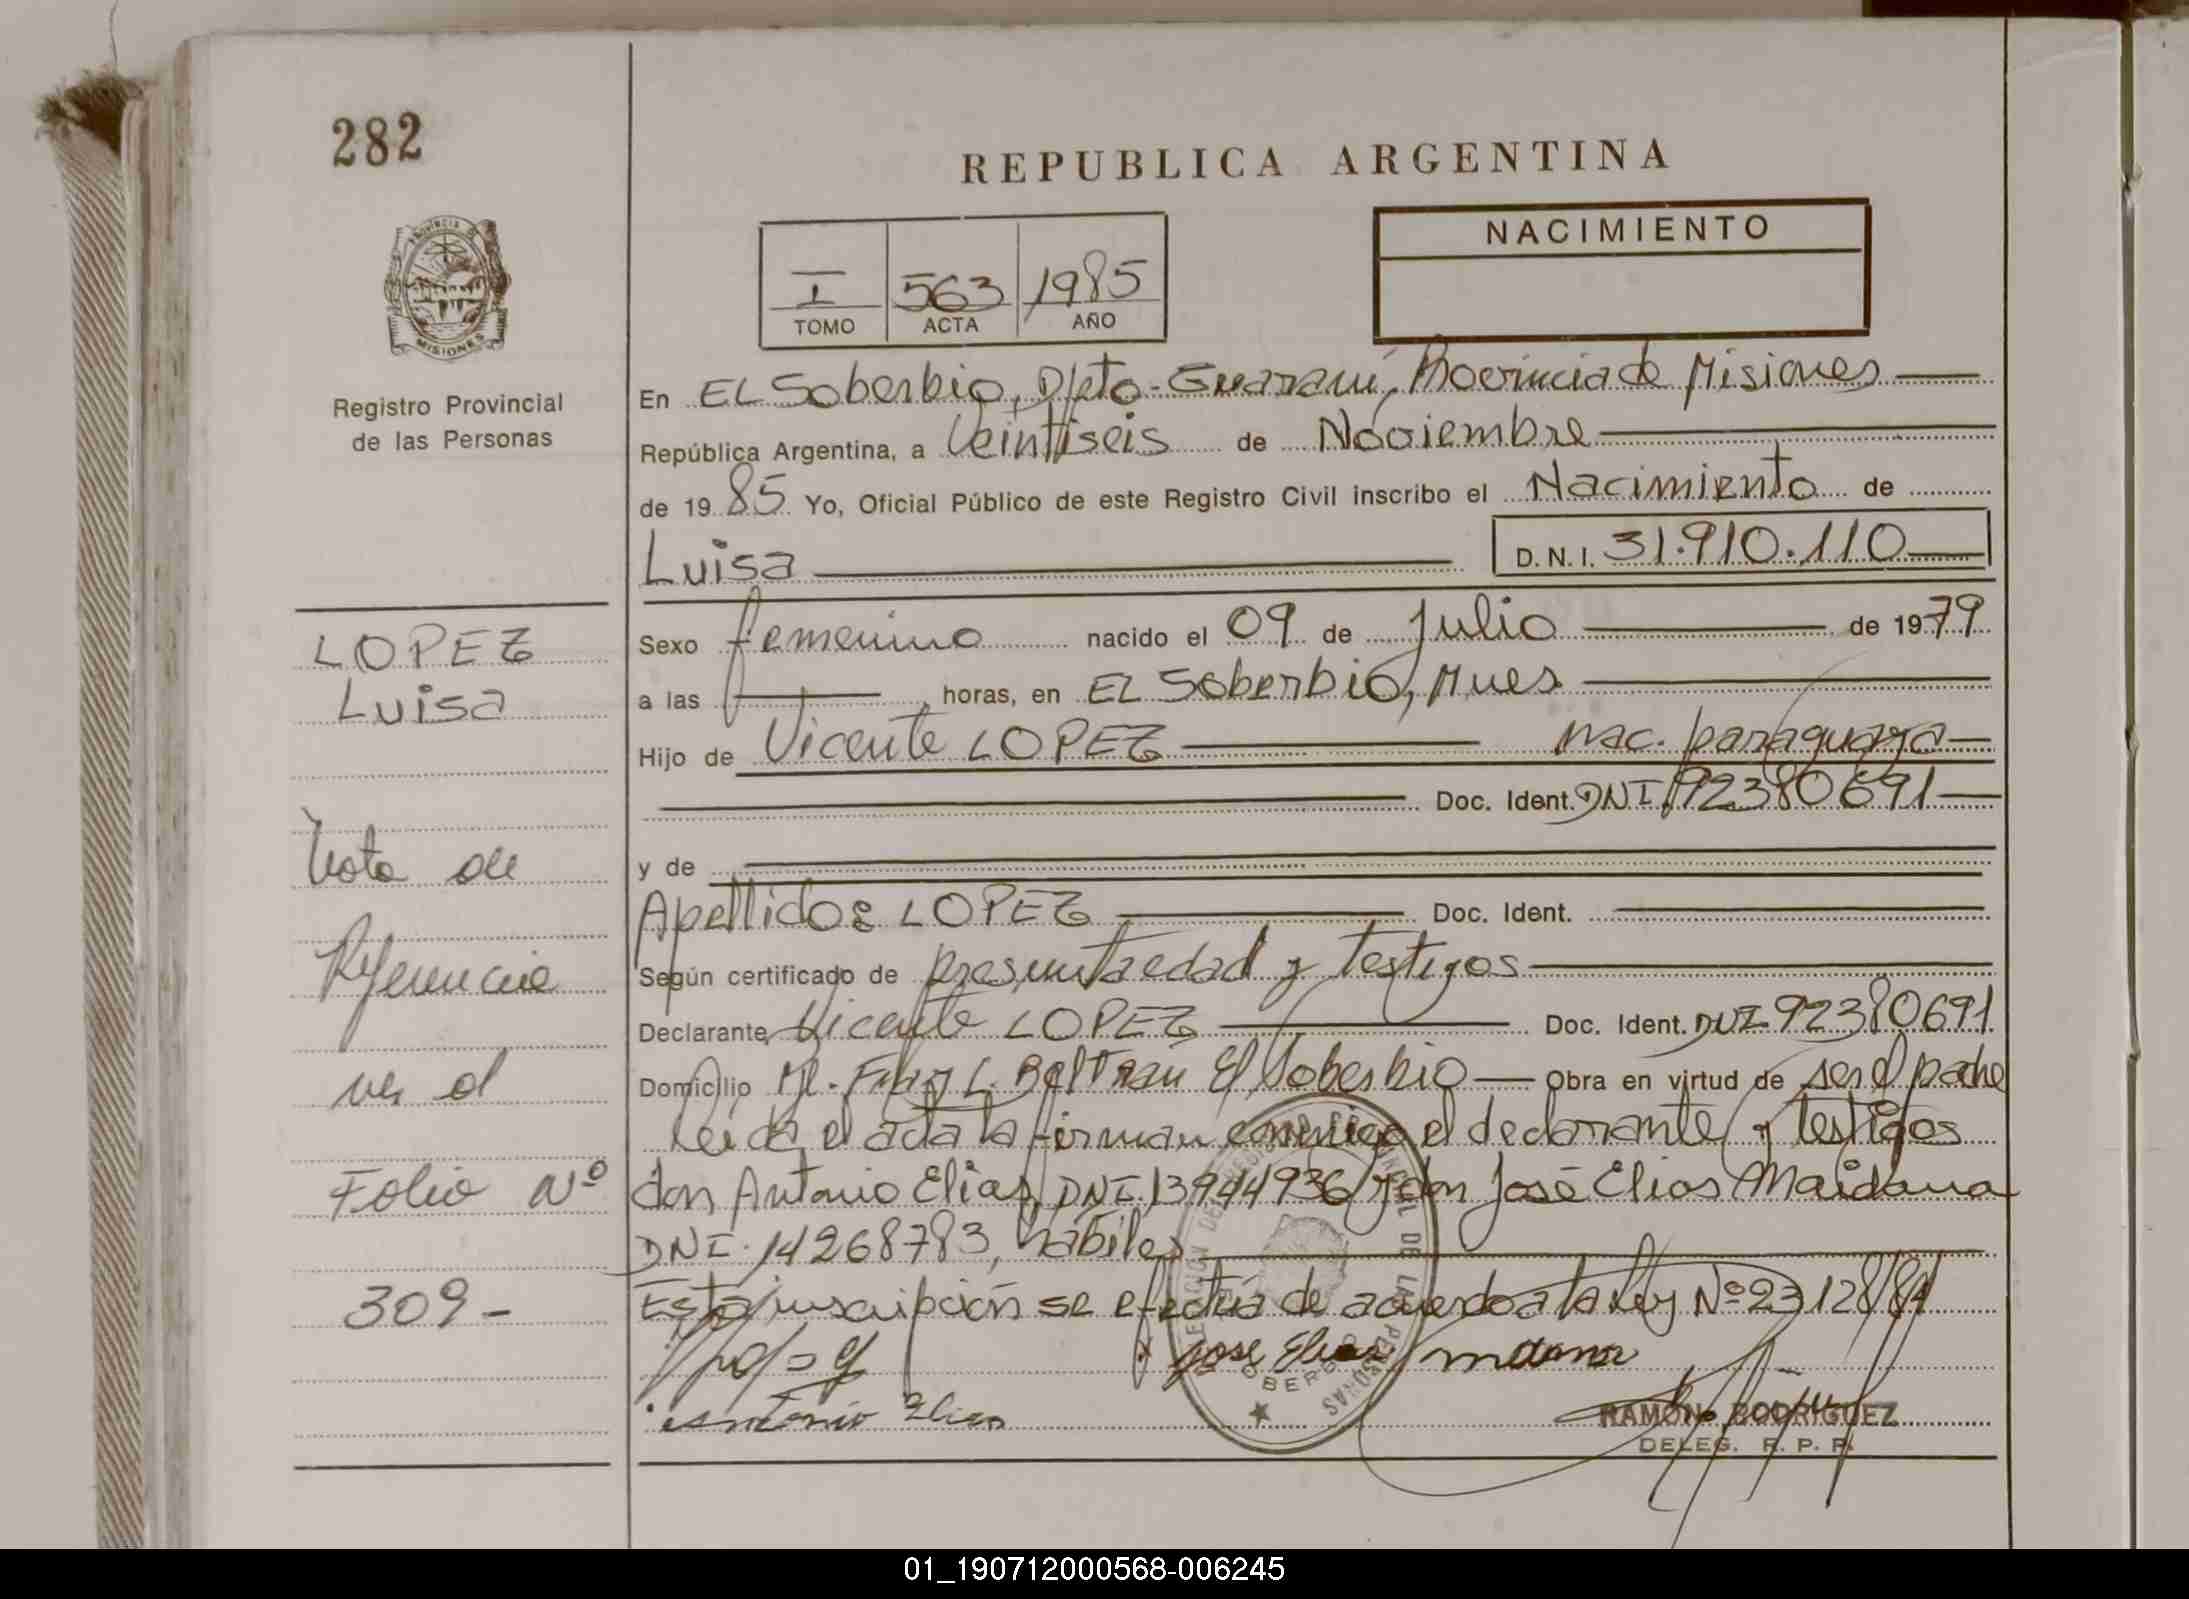 282
REPUBLICA ARGENTINA
PROVINCIA D MISIONES
Registro Provincial
de las Personas
I 563 1985
TOMO ACTA AÑO
NACIMIENTO
En EL Soberbio, Dpto-Guaraní, Provincia de Misiones
República Argentina, a Veintiseis de Noviembre
de 1985 Yo, Oficial Público de este Registro Civil inscribo el Nacimiento de
Luisa D.N.I. 31.910.110
Sexo femenino nacido el 09 de Julio de 1979
a las horas, en EL Soberbio, Mnes
Hijo de Vicente LOPEZ nac. paraguaya
Doc. Ident. DNI. 92380691
y de
Apellido: LOPEZ Doc. Ident.
Según certificado de presunta edad y testigos
Declarante Vicente LOPEZ Doc. Ident. DNI. 92380691
Domicilio L. Beltrán El Soberbio Obra en virtud de ser el padre
Leida el acta la firman conmigo el declarante y testigos
don Antonio Elias, DNI. 13944936 y don José Elias Maidana
DNI. 14268783, hábiles
Esta inscripción se efectúa de acuerdo a la Ley Nº 23128/84
Jose Elias
Antonio Elias
RAMON RODRIGUEZ
DELEG. R. P. P.
LOPEZ
Luisa
Nota de
Referencia
ver el
Folio Nº
309-
01_190712000568-006245